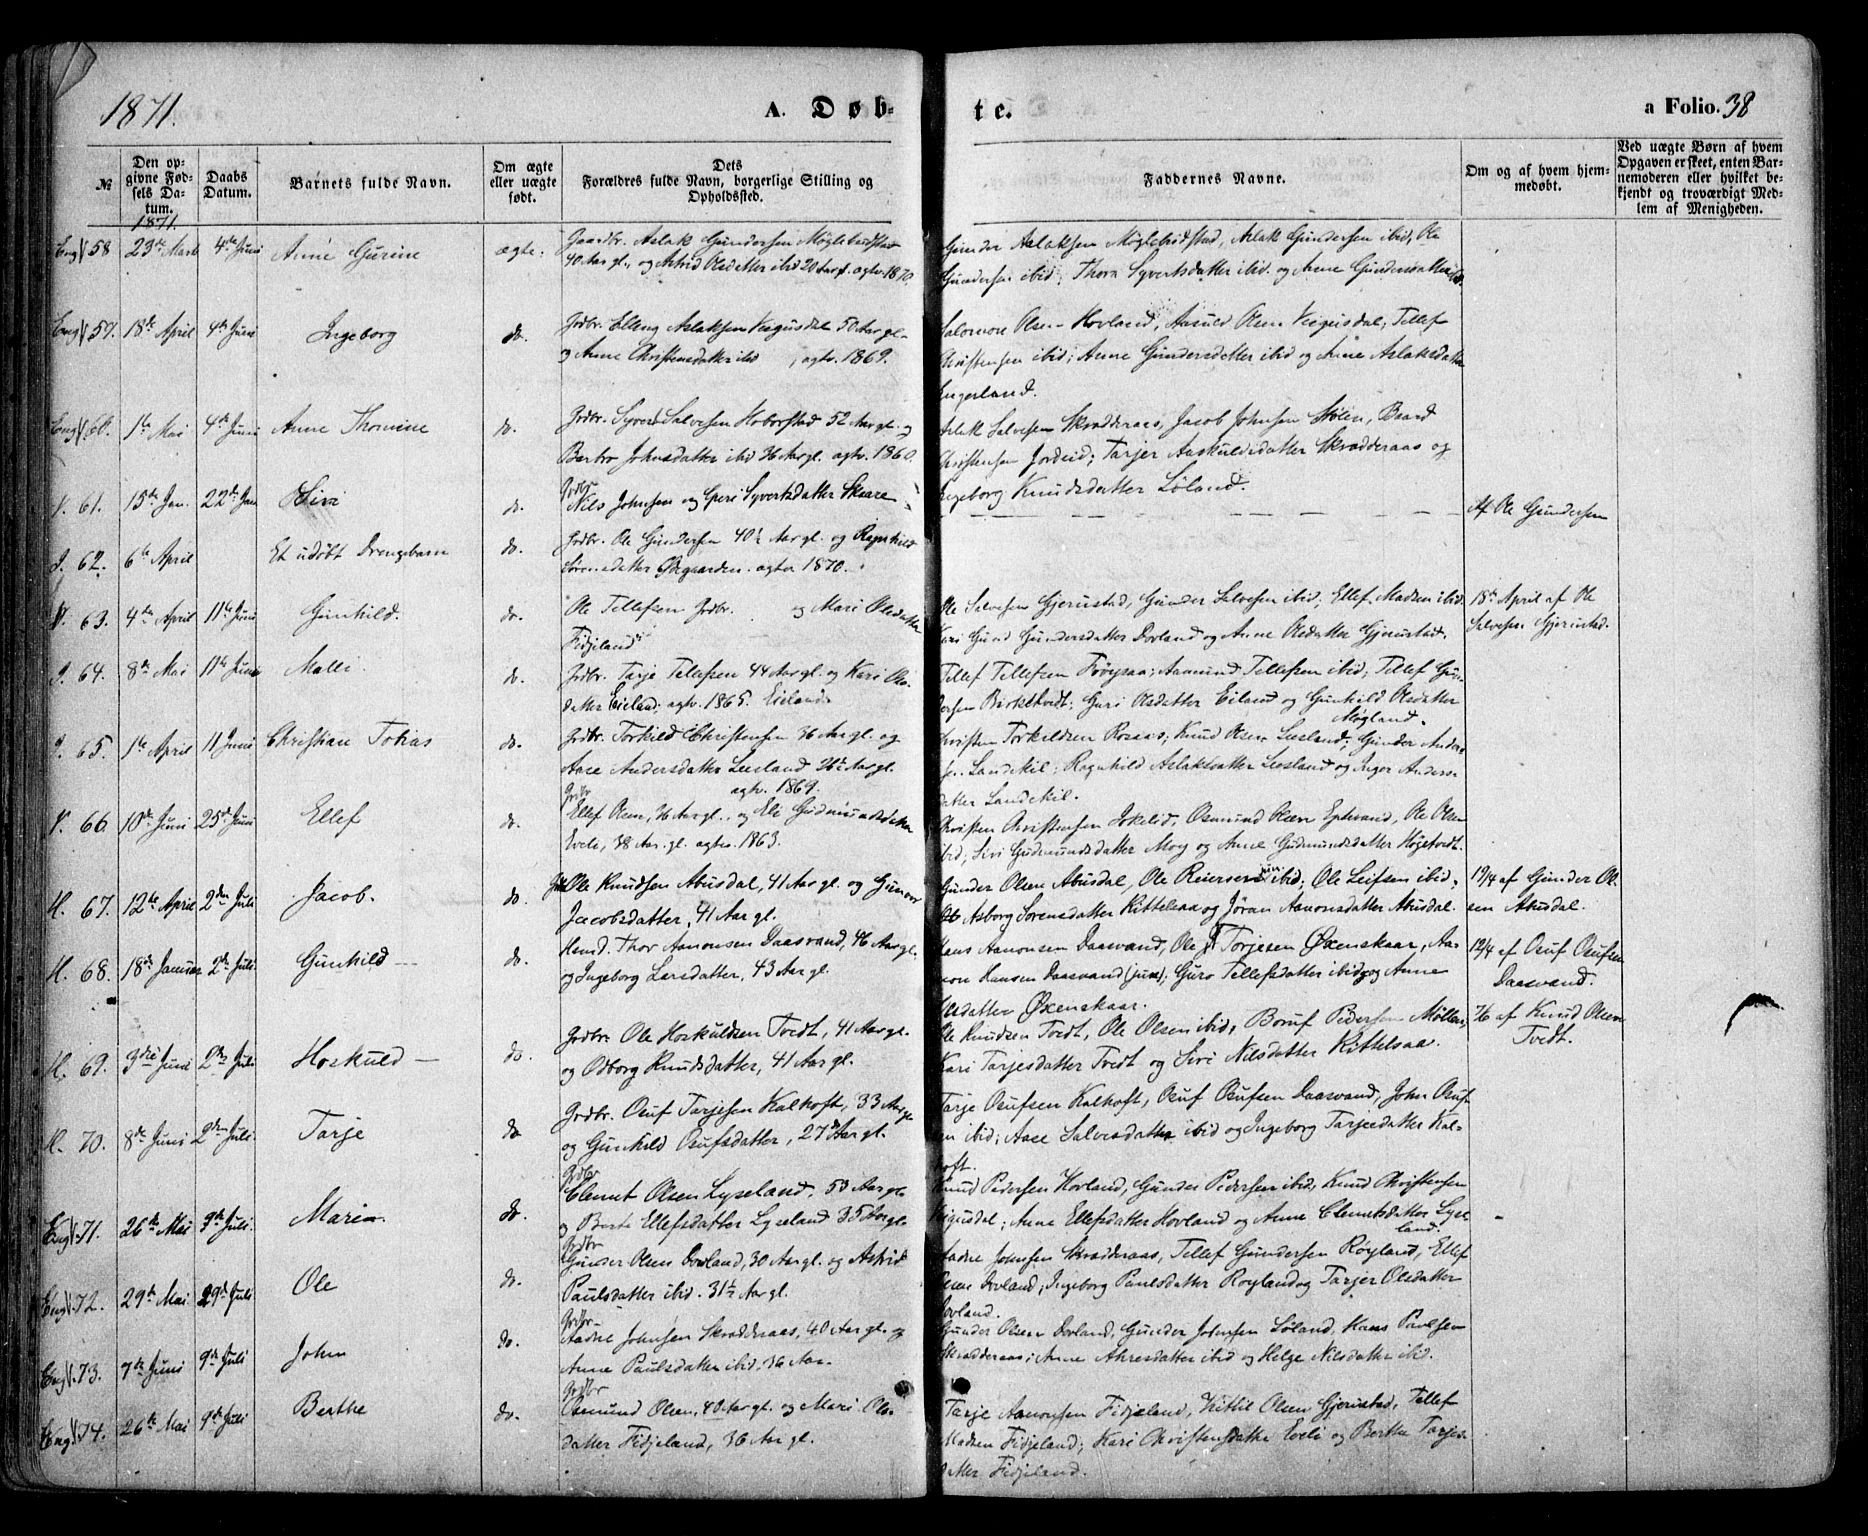 1871.
A. Døb-
te.
a Folio. 38
№
Den op-
givne Fød-
sels Da-
tum.
Daabs
Datum.
Barnets fulde Navn.
Om ægte
eller uægte
født.
Dets
Forældres fulde Navn, borgerlige Stilling og
Opholdssted.
Faddernes Navne.
Om og af hvem hjem-
medøbt.
Ved uægte Børn af hvem
Opgaven er skeet, enten Bar-
nemoderen eller hvilket be-
kjendt og troværdigt Med-
lem af Menigheden.
1871.
58 23de Marts 4de Juni Anne Gurine ægte. Gaardbr. Aslak Gundersen Møglebustad
40 Aar gl., og Astrid Olsdatter ibid 20 Aar gl. agtv. 1870.
Gunder Aslaksen Møglebustad, Aslak Gundersen ibid, Ole
Gundersen ibid; Thora Syvertsdatter ibid. og Anne Gundersdatter ibid.
59. 18de April 4de Juni Ingeborg do. Grdbr. Elling Aslaksen Vegusdal 50 Aar gl.
og Anne Christensdatter ibid, agtv. 1869.
Salomon Olsen Hovland, Aasuld Olsen Vegusdal; Tellef
Christensen ibid; Anne Gundersdatter ibid og Anne Aslaksdatter
Engesland.
60. 1ste Mai 4de Juni Anne Thomine do. Grdbr. Syvert Salvesen Hoborstad 52 Aar gl. og
Barbro Johnsdatter ibid 36 Aar gl. agtv. 1860.
Aslak Salvesen Skradderaas, Jacob Johnsen Stølen, Baard
Christensen Jordeid; Tarjer Aaskuldsdatter Skradderaas og
Ingeborg Knudsdatter Løland.
V. 61. 15de Jan. 22de Jan Sivi do. Grdbr
Nils Johnsen og Gyri Syvertsdatter Skaare
Af Ole Gundersen
62. 6te April Et udøbt Drengebarn do. Grdbr. Ole Gundersen 40½ Aar gl. og Ragnhild
Sørensdatter Ødegaarden. agtv 1870.
V. 63. 4de April 11te Juni Gunhild. do. Ole Tellefsen Grdbr. og Mari Olsdatter
Fidjeland
Ole Salvesen Gjerustad, Gunder Salvesen ibid; Ellef Madsen ibid.
Kari Gund Gundersdatter Dovland og Anne Olsdatter Gjerustad.
18de April af Ole
Salvesen Gjerustad.
64. 8de Mai 11te Juni Malli. do. Grdbr. Tarje Tellefsen 44 Aar gl. og Kari Ols-
datter Eieland; agtv. 1865. Eieland
Tellef Tellefsen Frøysaa; Aamund Tellefsen ibid; Tellef Gun-
dersen Birketvedt; Guri Olsdatter Eiland og Gunhild Olsdatter
Møgland.
65. 1ste April 11 Juni Christian Tobias do. Grdbr. Torkild Christensen 36 Aar gl. og
Aase Andersdatter Leesland 26½ Aar gl.
agtv. 1869.
Christen Torkildsen Rosaas; Knud Olsen Leesland; Gunder Anders-
sen Landekil; Ragnhild Aslaksdatter Leesland og Inger Anders-
datter Landekil.
V. 66. 10de Juni 25de Juni Ellef do. Grdbr
Ellef Olsen, 36 Aar gl., og Eli Gudmundsdatter
Eveli, 38 Aar. gl. agtv. 1863.
Christen Christensen Jokelid, Osmund Olsen Eptevand, Ole Olsen
ibid; Sivi Gudmundsdatter Moy og Anne Gudmundsdatter Høgetvedt.
H. 67. 12te April 2den Juli Jacob. do. Grdb. Ole Knudsen Abusdal, 41 Aar gl. og Gunvor
Jacobsdatter, 41 Aar gl.
Gunder Olsen Abusdal, Ole Reiersen jun: ibid; Ole Leifsen ibid;
Asborg Sørensdatter Kittelsaa og Jøran Aanonsdatter Abusdal.
19/4 af Gunder Ol-
sen Abusdal.
H. 68. 18de Januar 2de Juli Gunhild — do. Huusmd. Thor Aanonsen Daasvand, 46 Aar gl.
og Ingeborg Larsdatter, 43 Aar gl.
Hans Aanonsen Daasvand, Ole Torjesen Øxenskaar, Aa-
non Hansen Daasvand (jun), Guro Tellefsdatter ibid og Anne
Olsdatter Øxenskaar.
12/4 af Osuf Osufsen
Daasvand.
H. 69. 3die Juni 2den Juli Hoskuld — do. Grdbr. Ole Hoskuldsen Tvedt, 41 Aar gl.
og Odborg Knudsdatter, 41 Aar gl.
Ole Knudsen Tvedt, Ole Olsen ibid, Boruf Pedersen Møllen,
Kari Tarjesdatter Tvedt og Sivi Nilsdatter Kittelsaa.
7/6 af Knud Olsen
Tvedt.
H. 70. 8de Juni 2den Juli. Tarje do Grdbr. Osuf Tarjesen Kalhoft, 33 Aar gl.
og Gunhild Osufsdatter, 27 Aar gl.
Tarje Osufsen Kalhoft, Osuf Osufsen Daasvand, John Osuf-
sen ibid; Aase Salvesdatter ibid og Ingeborg Tarjesdatter Kal-
hoft.
71. 26de Mai 9de Juli. Maria do. Grdbr
Clemet Olsen Lyseland, 53 Aar gl.
og Berte Ellefsdatter Lyseland 35 Aar gl.
Knud Pedersen Hovland, Gunder Pedersen ibid, Knud Christensen
Vegusdal; Anne Ellefsdatter Hovland og Anne Clemetsdatter Lyse-
land.
72. 29de Mai 9de Juli Ole do. Grdbr
Gunder Olsen Dovland, 30 Aar gl. og Astrid
Paulsdatter ibid. 31½ Aar gl.
Aadne Johnsen Skradderaas, Tellef Gundersen Røyland, Ellef
Olsen Dovland; Ingeborg Paulsdatter Royland og Tarjer Olsdatter
Dovland.
73. 7de Juni 9de Juli John do. Grdbr
Aadne Johnsen Skradderaas, 40 Aar gl. og
Anne Paulsdatter ibid, 36 Aar.
Gunder Olsen Dovland, Gunder Johnsen Løland, Hans Paulsen
Skradderaas; Anne Ahresdatter ibid og Helge Nilsdatter ibid.
74. 26de Mai 9de Juli Berthe do. Grdbr
Osmund Olsen, 40 Aar gl. og Mari Ols-
datter Fidjeland, 36 Aar gl.
Tarje Aanonsen Fidjeland, Kittil Olsen Gjerustad, Tellef
Madsen Fidjeland; Kari Christensdatter Eveli og Berthe Tarjes-
datter Fidjeland.